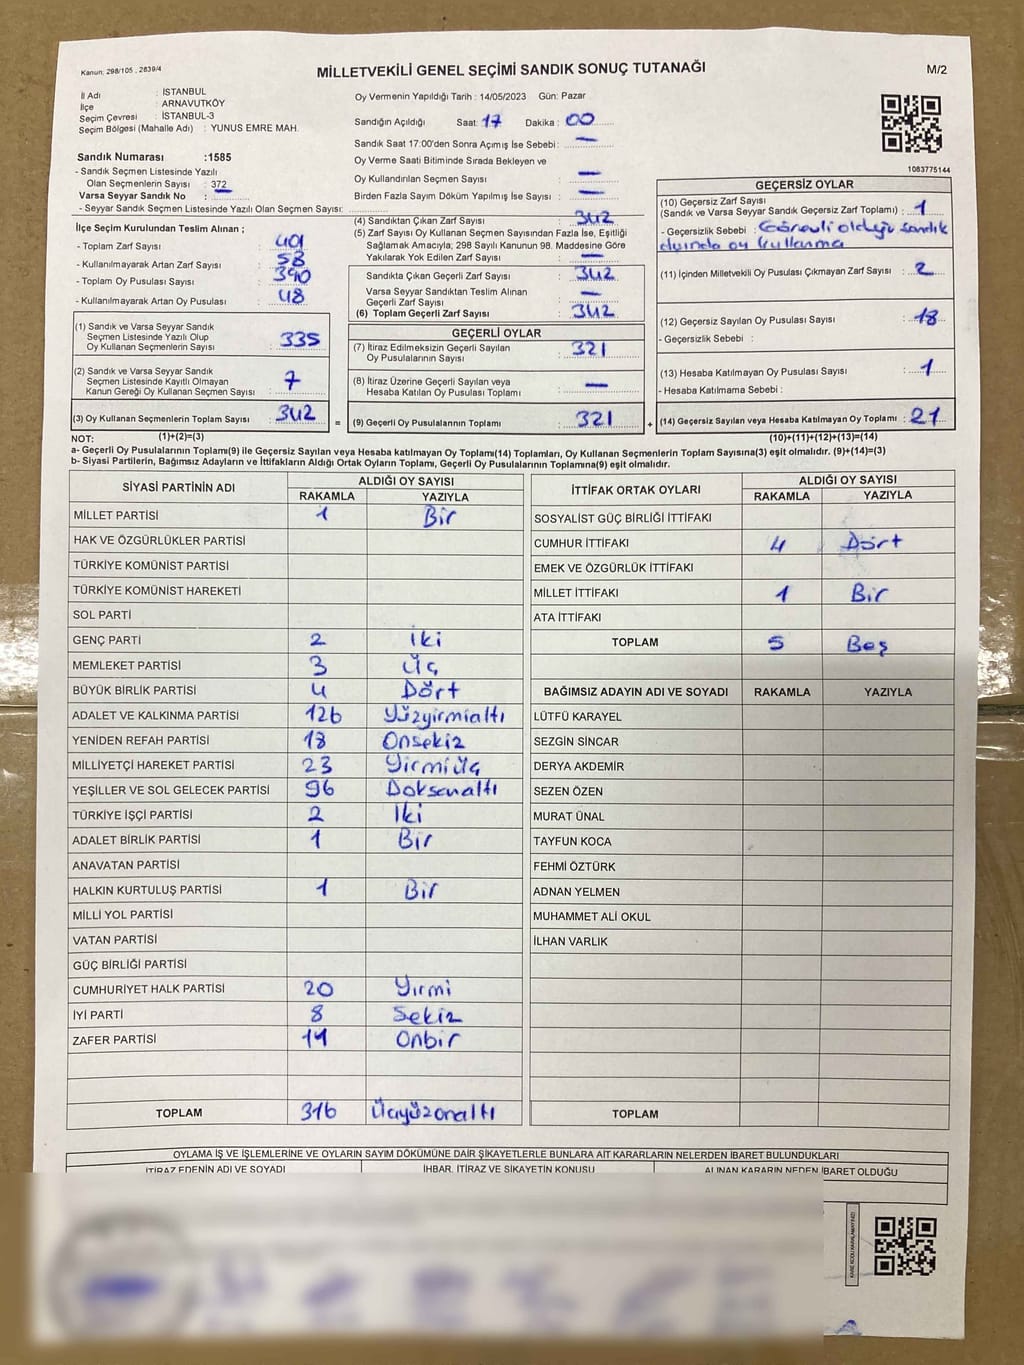 Kanun: 298/105 , 2839/4
MİLLETVEKİLİ GENEL SEÇİMİ SANDIK SONUÇ TUTANAĞI
M/2
İl Adı : İSTANBUL
İlçe : ARNAVUTKÖY
Seçim Çevresi : İSTANBUL-3
Seçim Bölgesi (Mahalle Adı) : YUNUS EMRE MAH.
Sandık Numarası :1585
- Sandık Seçmen Listesinde Yazılı
Olan Seçmenlerin Sayısı : 372
Varsa Seyyar Sandık No :
- Seyyar Sandık Seçmen Listesinde Yazılı Olan Seçmen Sayısı:
İlçe Seçim Kurulundan Teslim Alınan ;
- Toplam Zarf Sayısı : 401
- Kullanılmayarak Artan Zarf Sayısı : 58
- Toplam Oy Pusulası Sayısı : 390
- Kullanılmayarak Artan Oy Pusulası : 48
(1) Sandık ve Varsa Seyyar Sandık
Seçmen Listesinde Yazılı Olup
Oy Kullanan Seçmenlerin Sayısı : 335
(2) Sandık ve Varsa Seyyar Sandık
Seçmen Listesinde Kayıtlı Olmayan
Kanun Gereği Oy Kullanan Seçmen Sayısı : 7
(3) Oy Kullanan Seçmenlerin Toplam Sayısı : 342
(1)+(2)=(3)
Oy Vermenin Yapıldığı Tarih : 14/05/2023 Gün: Pazar
Sandığın Açıldığı Saat: 17 Dakika : 00
Sandık Saat 17:00'den Sonra Açımış İse Sebebi : —
Oy Verme Saati Bitiminde Sırada Bekleyen ve
Oy Kullandırılan Seçmen Sayısı : —
Birden Fazla Sayım Döküm Yapılmış İse Sayısı : —
(4) Sandıktan Çıkan Zarf Sayısı : 342
(5) Zarf Sayısı Oy Kullanan Seçmen Sayısından Fazla İse, Eşitliği
Sağlamak Amacıyla; 298 Sayılı Kanunun 98. Maddesine Göre
Yakılarak Yok Edilen Zarf Sayısı : —
Sandıkta Çıkan Geçerli Zarf Sayısı : 342
Varsa Seyyar Sandıktan Teslim Alınan
Geçerli Zarf Sayısı : —
(6) Toplam Geçerli Zarf Sayısı : 342
GEÇERLİ OYLAR
(7) İtiraz Edilmeksizin Geçerli Sayılan
Oy Pusulalarının Sayısı : 321
(8) İtiraz Üzerine Geçerli Sayılan veya
Hesaba Katılan Oy Pusulası Toplamı : —
= (9) Geçerli Oy Pusulalarının Toplamı : 321 +
1083775144
GEÇERSİZ OYLAR
(10) Geçersiz Zarf Sayısı
(Sandık ve Varsa Seyyar Sandık Geçersiz Zarf Toplamı) : 1
- Geçersizlik Sebebi : Görevli olduğu sandık
dışında oy kullanma
(11) İçinden Milletvekili Oy Pusulası Çıkmayan Zarf Sayısı : 2
(12) Geçersiz Sayılan Oy Pusulası Sayısı : 18
- Geçersizlik Sebebi :
(13) Hesaba Katılmayan Oy Pusulası Sayısı : 1
- Hesaba Katılmama Sebebi :
(14) Geçersiz Sayılan veya Hesaba Katılmayan Oy Toplamı : 21
(10)+(11)+(12)+(13)=(14)
NOT:
a- Geçerli Oy Pusulalarının Toplamı(9) ile Geçersiz Sayılan veya Hesaba katılmayan Oy Toplamı(14) Toplamları, Oy Kullanan Seçmenlerin Toplam Sayısına(3) eşit olmalıdır. (9)+(14)=(3)
b- Siyasi Partilerin, Bağımsız Adayların ve İttifakların Aldığı Ortak Oyların Toplamı, Geçerli Oy Pusulalarının Toplamına(9) eşit olmalıdır.
SİYASİ PARTİNİN ADI ALDIĞI OY SAYISI
RAKAMLA YAZIYLA
MİLLET PARTİSİ 1 Bir
HAK VE ÖZGÜRLÜKLER PARTİSİ
TÜRKİYE KOMÜNİST PARTİSİ
TÜRKİYE KOMÜNİST HAREKETİ
SOL PARTİ
GENÇ PARTİ 2 İki
MEMLEKET PARTİSİ 3 Üç
BÜYÜK BİRLİK PARTİSİ 4 Dört
ADALET VE KALKINMA PARTİSİ 126 Yüzyirmialtı
YENİDEN REFAH PARTİSİ 18 Onsekiz
MİLLİYETÇİ HAREKET PARTİSİ 23 Yirmiüç
YEŞİLLER VE SOL GELECEK PARTİSİ 96 Doksanaltı
TÜRKİYE İŞÇİ PARTİSİ 2 İki
ADALET BİRLİK PARTİSİ 1 Bir
ANAVATAN PARTİSİ
HALKIN KURTULUŞ PARTİSİ 1 Bir
MİLLİ YOL PARTİSİ
VATAN PARTİSİ
GÜÇ BİRLİĞİ PARTİSİ
CUMHURİYET HALK PARTİSİ 20 Yirmi
İYİ PARTİ 8 Sekiz
ZAFER PARTİSİ 11 Onbir
TOPLAM 316 Üçyüzonaltı
İTTİFAK ORTAK OYLARI ALDIĞI OY SAYISI
RAKAMLA YAZIYLA
SOSYALİST GÜÇ BİRLİĞİ İTTİFAKI
CUMHUR İTTİFAKI 4 Dört
EMEK VE ÖZGÜRLÜK İTTİFAKI
MİLLET İTTİFAKI 1 Bir
ATA İTTİFAKI
TOPLAM 5 Beş
BAĞIMSIZ ADAYIN ADI VE SOYADI RAKAMLA YAZIYLA
LÜTFÜ KARAYEL
SEZGİN SİNCAR
DERYA AKDEMİR
SEZEN ÖZEN
MURAT ÜNAL
TAYFUN KOCA
FEHMİ ÖZTÜRK
ADNAN YELMEN
MUHAMMET ALİ OKUL
İLHAN VARLIK
TOPLAM
OYLAMA İŞ VE İŞLEMLERİNE VE OYLARIN SAYIM DÖKÜMÜNE DAİR ŞİKAYETLERLE BUNLARA AİT KARARLARIN NELERDEN İBARET BULUNDUKLARI
İTİRAZ EDENİN ADI VE SOYADI İHBAR, İTİRAZ VE ŞİKAYETİN KONUSU ALINAN KARARIN NEDEN İBARET OLDUĞU